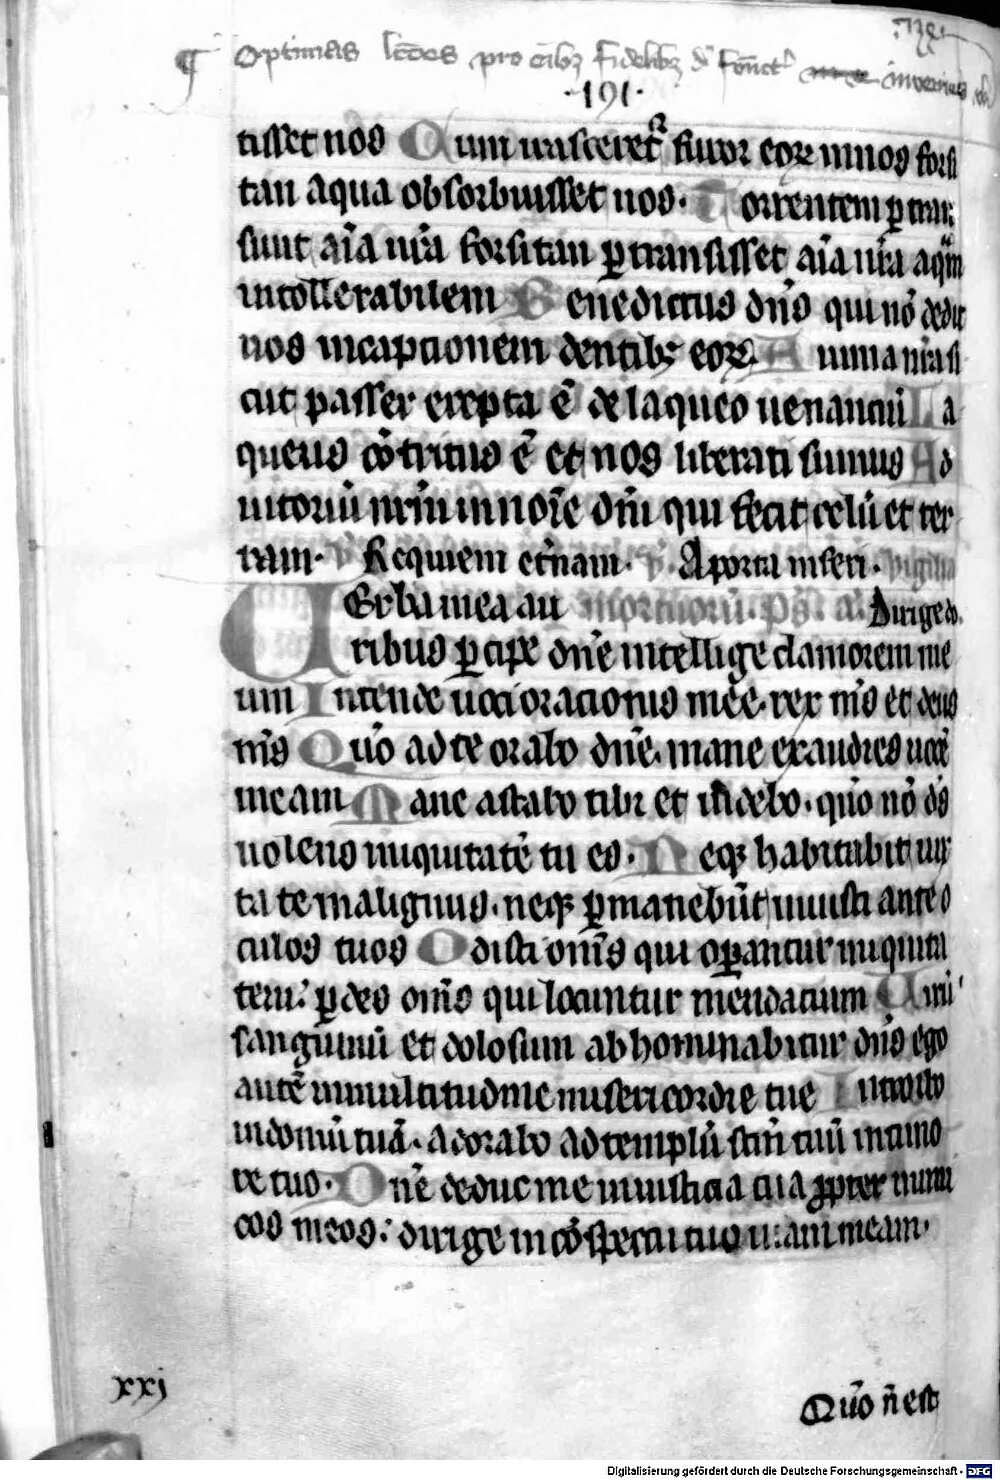 ¶ Optimas lc̄ōes pro oīb3 fidelib3 d' fūct' invenies
·191·
tisset nos Qum irasceret᷑ furor eoꝝ in nos forsi
tan aqua obsorbuisset nos· Torrentem ꝑtran
siuit aīa nr̄a forsitan ꝑtransisset aīa nr̄a aqᷓm
intollerabilem Benedictus dn̄s qui nō dedit
nos in captionem dentib3 eoꝝ Anima nr̄a si
cut passer erepta ē de laqueo uenanciū La
queus cōtritus ē et nos liberati sumus Ad
iutoriū nr̄m in noīe dn̄i qui fecit celū et ter
ram· Requiem et̄nam· A porta inferi· vigilia
VErba mea au mortuorū· ps̄· a· Dirige do.
ribus ꝑcipe dn̄e intellige clamorem me
um Intende uoci oracionis mee· rex ms̄ et deus
ms̄ Qūo ad te orabo dn̄e· mane exaudies uocē
meam Mane astabo tibi et uidebo· qūo nō ds̄
uolens iniquitatē tu es· Neqꝫ habitabit iux
ta te malignus· neqꝫ ꝑmanebūt iniusti ante o
culos tuos Odisti om̄s qui oꝑantur iniquita
tem: ꝑdes om̄s qui locuntur mendacium Uirū
sanguinū et dolosum abhominabitur dn̄s ego
autē in multitudine misericordie tue Introibo
in domū tuā· adorabo ad templū sc̄m tuū in timo
re tuo· Dn̄e deduc me in iusticia tua ꝓpter inimi
cos meos: dirige in cōspectu tuo uiam meam·
xxj
Qūo n̄ est
Digitalisierung gefördert durch die Deutsche Forschungsgemeinschaft - DFG